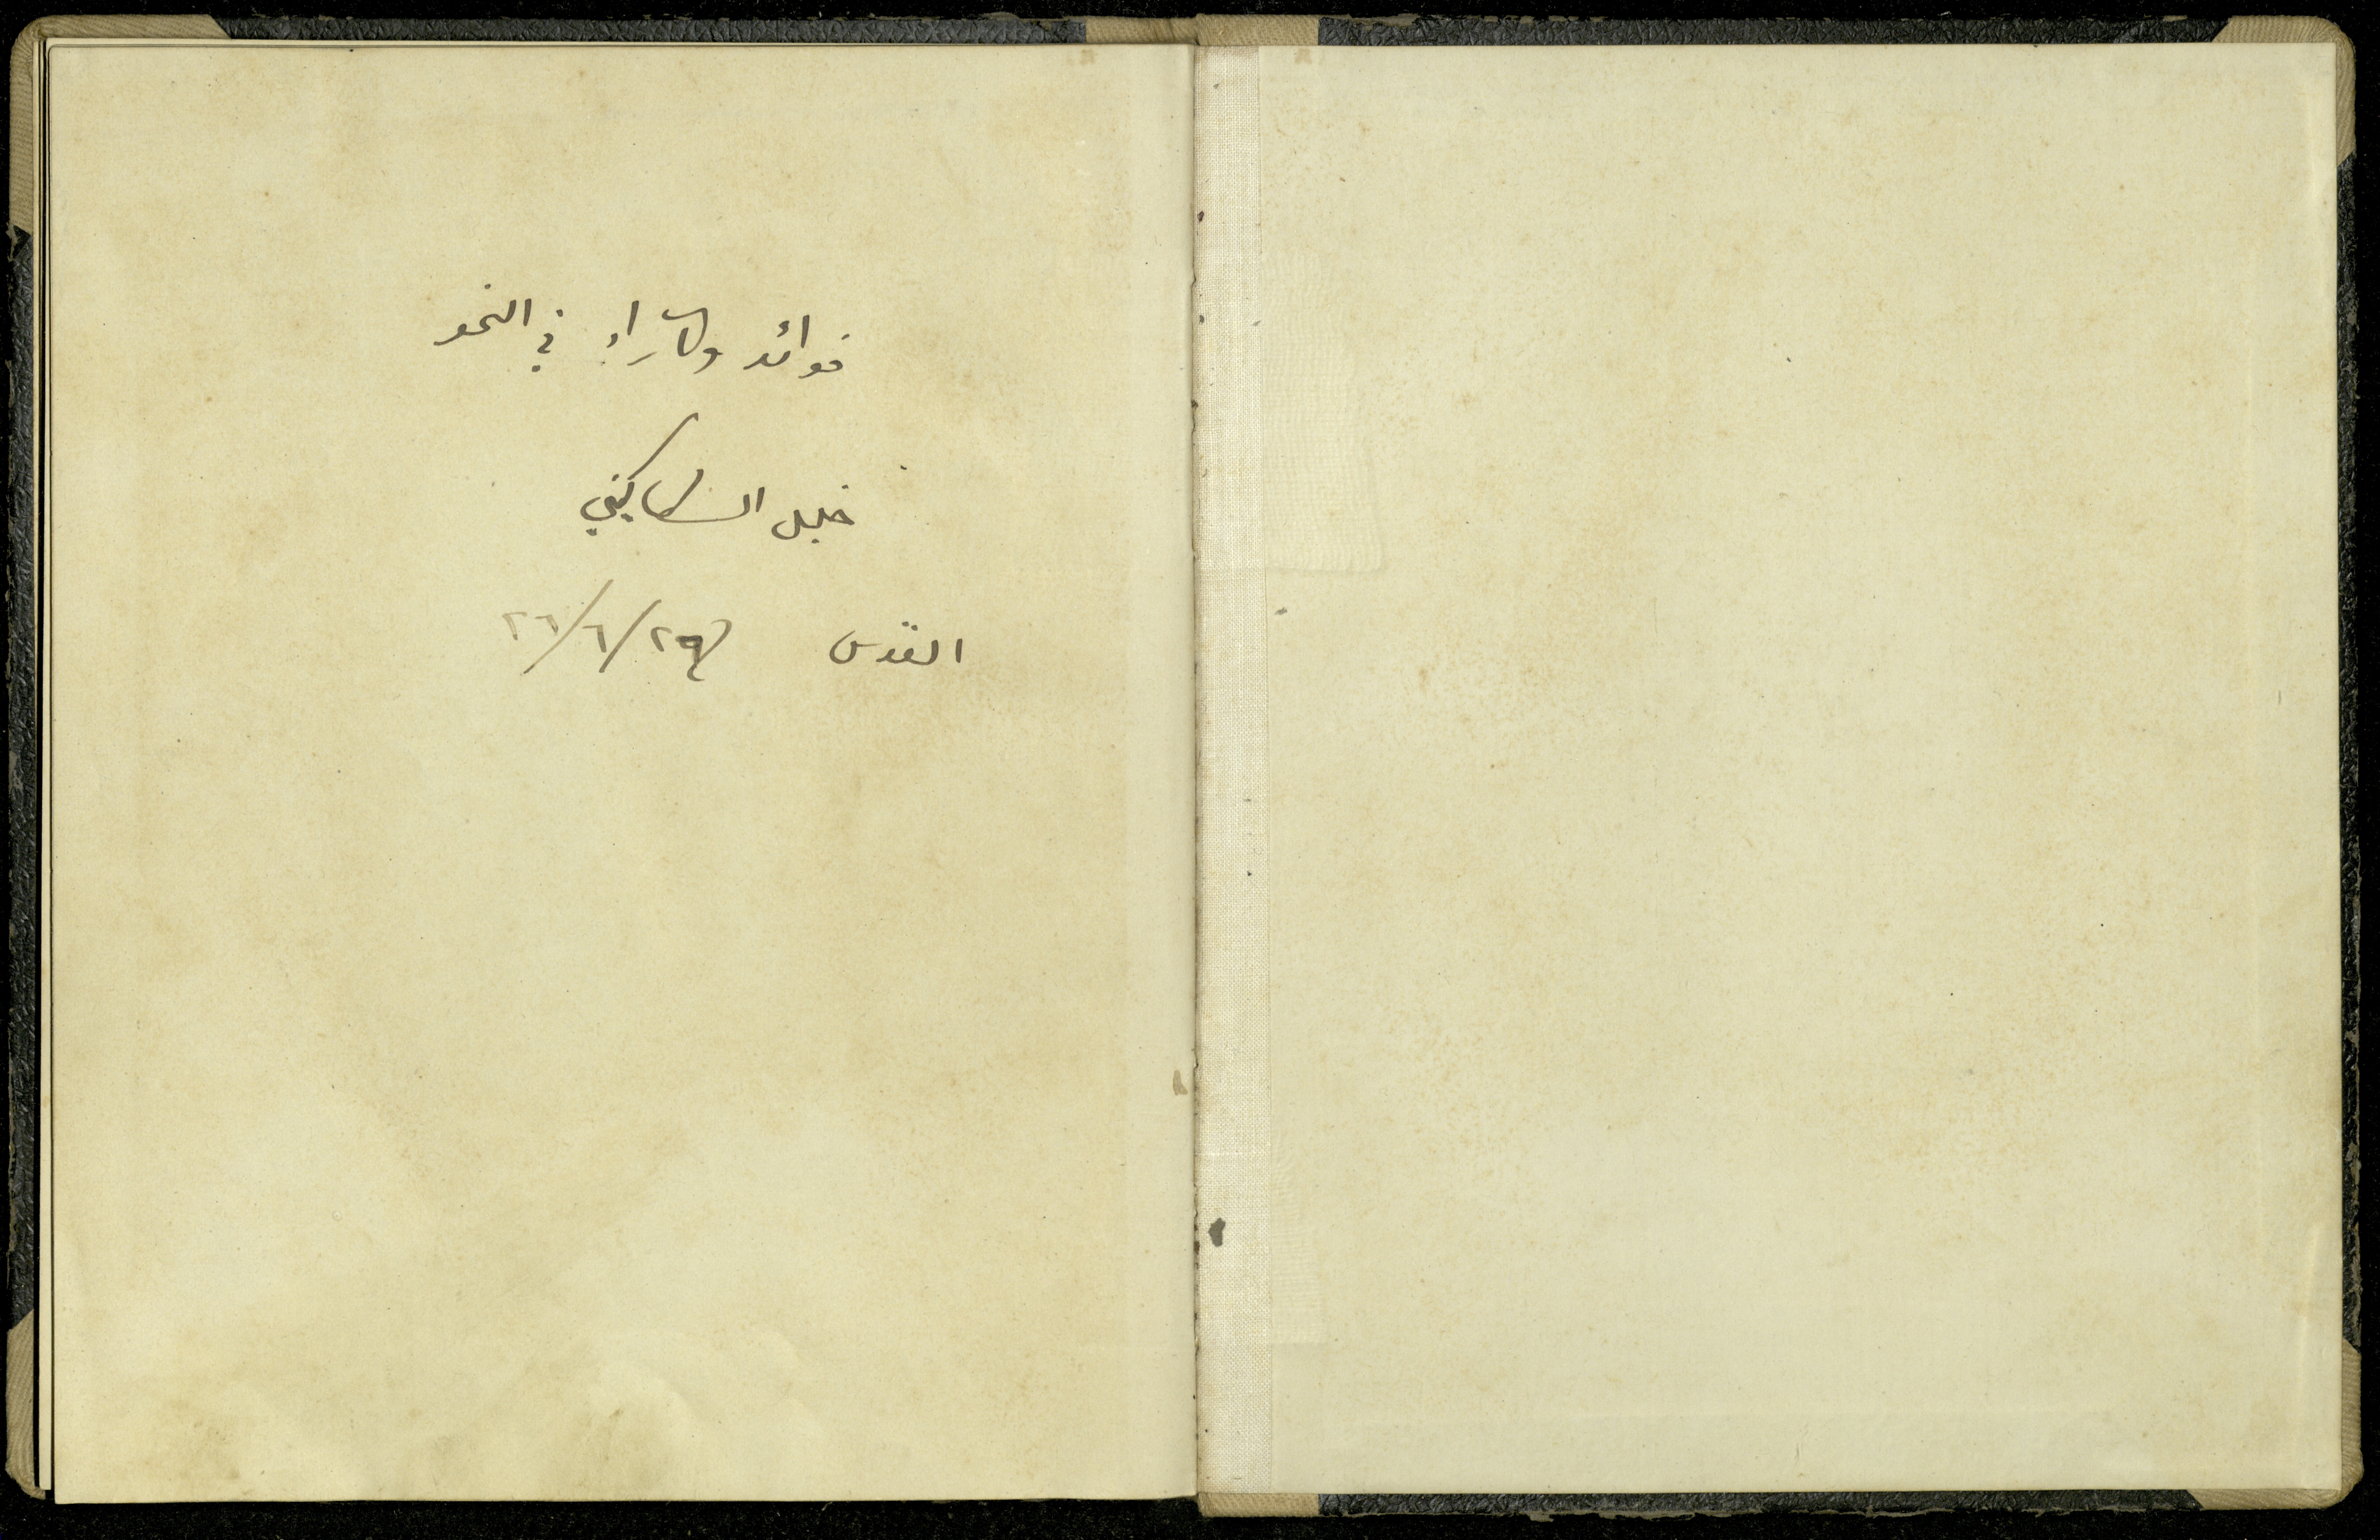 فوائد وآراء في النحو
خليل السكاكيني
القدس ٢٦/٦/٢٩